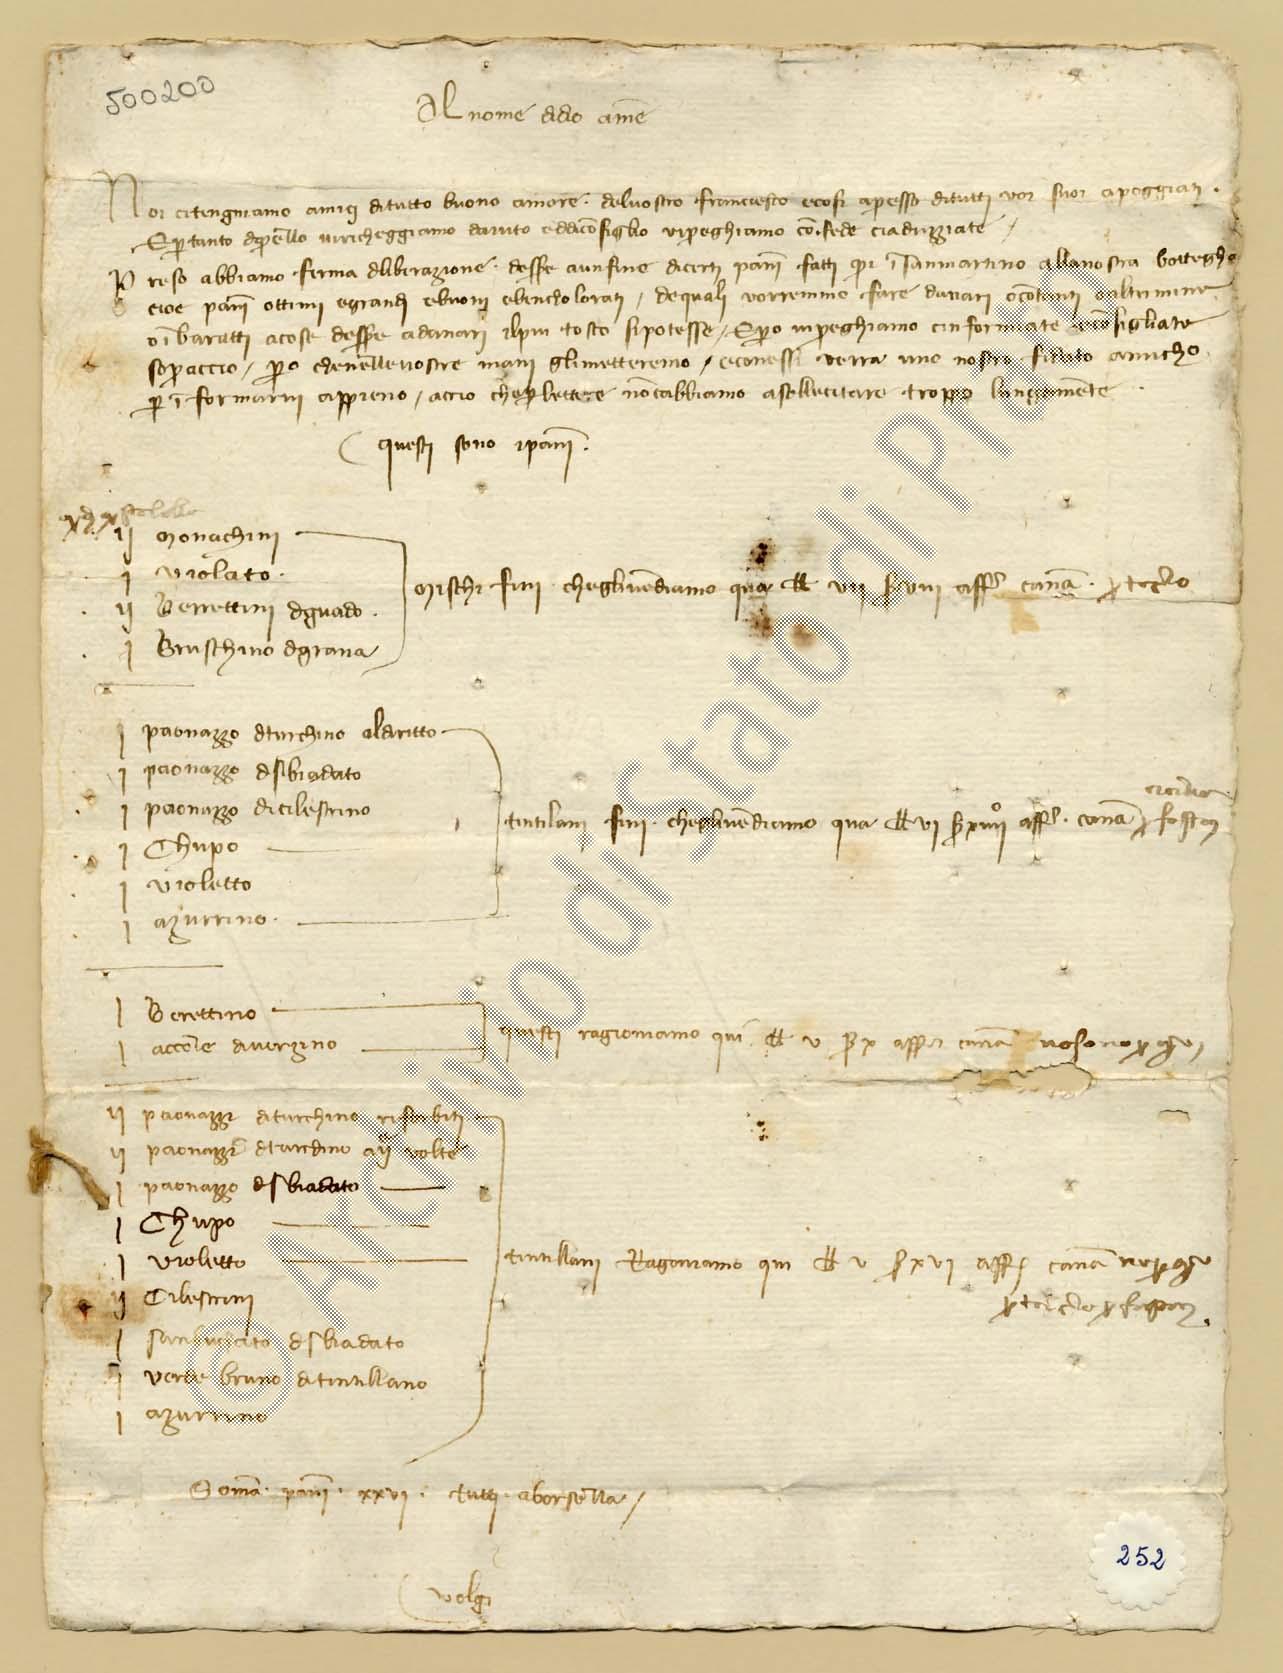 500200
Al nome ddio ame
Noi citengniamo amici ditutto buono amore. delvostro francescho ecosi apresso ditutti voi suoi apoggiati.
Epertanto dperello vericheggiamo daiuto eddaconsiglio vipreghiamo con fede ciaduzziate /
Preso abbiamo ferma dliberazione. desse a unfine dicerti pani fatti qui i sanmartino allanostra bottegha
cioe pani ottimi egrandi ebuoni ebencholorati / dequali vorremmo fare danari contanti oaltrimenti
oi baratti acose desse adanari ilpiu tosto sipotesse / Epero vipreghiamo cinformiate econsigliate
sopraccio / pero chenellevostre mani glimetteremo / econessi verra uno nostro fidato amicho
per iformarvi appieno / accio cheperlettere noncabbiamo asollecitare troppo lungamente
questi sono i pani.
ij Monachini
j violato.
ij Berrettini dguado.
j Bruschino dgrana
Mischi fini cheglivendiamo qua vij viij aff cana.
j paonazzo dturchino alaritto
j paonazzo dsbiadato
j paonazzo dicilestrino
j Chupo
j violetto
j azurrino.
tintilani fini cheglivendiamo qua vi xiiij aff cana
j Berettino
j accole diverzino
questi ragioniamo qui v x aff cana
ij paonazzi dturchino
ij paonazzi dturchino aij volte
j paonazzo dsbiadato
j Chupo
j violetto
ij Cilestrini
j sanbuchato dsbiadato
j verde bruno ditintillano
j azurrino
tintillani Ragoniamo qui v xvi aff cana
Soma. pani. xxvi. tutti aborsella /
volgi
© Archivio di Stato di Prato
252